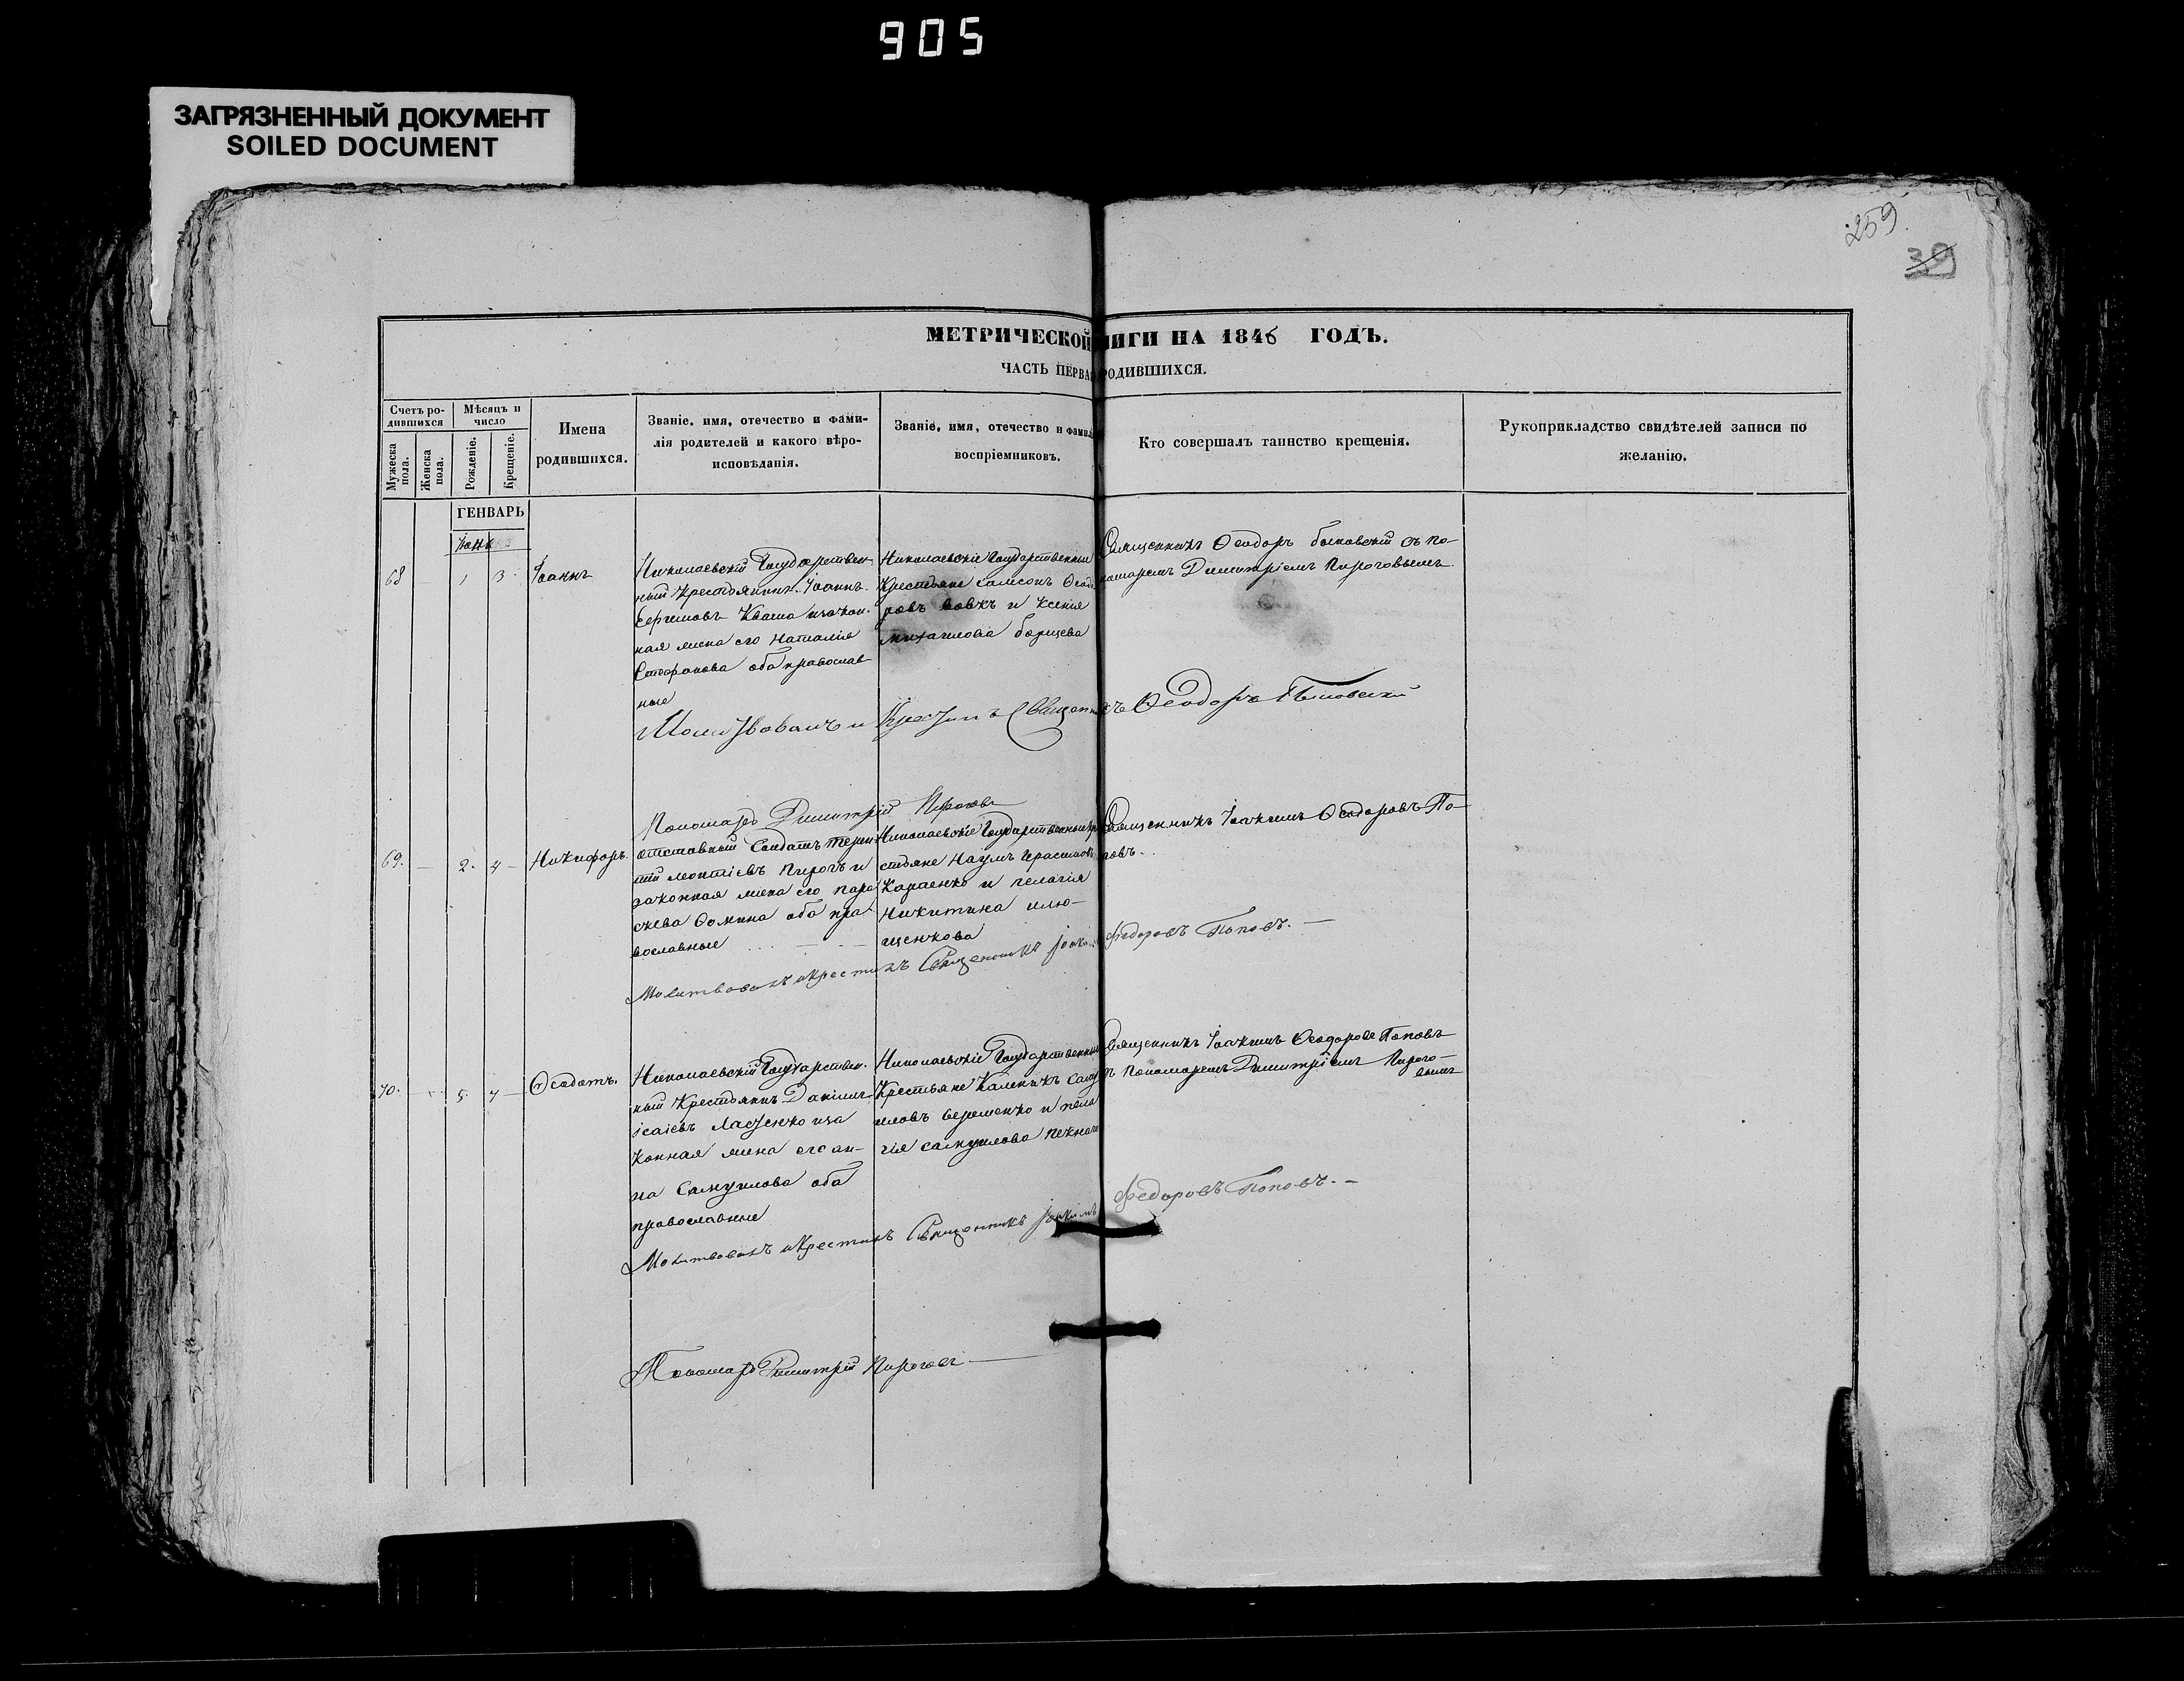 905
ЗАГРЯЗНЕННЫЙ ДОКУМЕНТ
SOILED DOCUMENT
259
39
МЕТРИЧЕСКОЙ НИГИ НА 1846 ГОДЪ.
ЧАСТЬ ПЕРВАЯ РОДИВШИХСЯ.
Счетъ ро-
дившихся
Мужеска пола.
Женска пола.
Мѣсяцъ и
число
Рожденіе.
Крещеніе.
Имена
родившихся.
Званіе, имя, отечество и фами-
лія родителей и какого вѣро-
исповѣданія.
Званіе, имя, отечество и фамил
воспріемниковъ.
Кто совершалъ таинство крещенія.
Рукоприкладство свидѣтелей записи по
желанію.
ГЕНВАРЬ
68 1 3 Іоаннъ
Николаевскій Государствен-
ный Крестьянинъ Іоаннъ
Сергіевъ Кваша и закон-
ная жена его Наталія
Стефанова оба православ
ные
Николаевскіе Государственные
Крестьяне Самсонъ Ѳеодо
ровъ Вовкъ и Ксенія
Михаилова Борщева
Священникъ Ѳеодоръ Быковскій съ по-
номаремъ Димитріемъ Пироговымъ
Молитвовалъ и Крестилъ Священникъ Ѳеодоръ Быковскій
Пономарь Димитрій Пироговъ
69. — 2. 4 — Никифоръ.
Отставный Солдатъ Терен
тій Леонтіевъ Пирогъ и
законная жена его Пара
скева Ѳомина оба пра-
вославные
Николаевскіе Государственные Кре
стьяне Наумъ Герасимов
Карпенко и Пелагія
Никитина Илю-
щенкова
Священникъ Іоакимъ Ѳеодоровъ По-
повъ.
Молитвовалъ и Крестилъ Священникъ Іоакимъ Федоровъ Поповъ. —
70. — 5. 7 — Ѳеодотъ.
Николаевскій Государствен-
ный Крестьянинъ Даніилъ
Ісаіевъ Лазенко и за
конная жена его Ан-
на Самуилова оба
православные
Николаевскіе Государственные
Крестьяне Каленикъ Саму
иловъ Веременко и Пела
гія Самуилова
Священникъ Іоакимъ Ѳеодоровъ Поповъ
съ Пономаремъ Димитріемъ Пирого-
вымъ
Молитвовалъ и Крестилъ Священникъ Іоакимъ Федоровъ Поповъ. —
Пономарь Димитрій Пироговъ